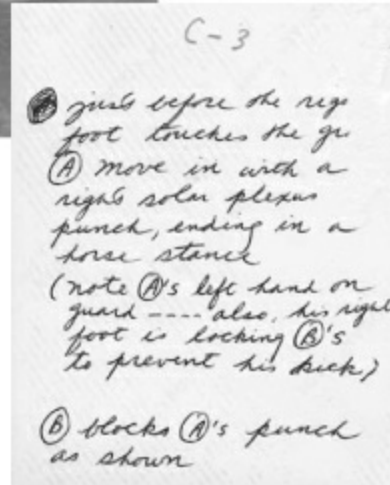 C-3
just before the rig
foot touches the g
Ⓐ move in with a
right solar plexus
punch, ending in a
horse stance
(note Ⓐ's left hand on
guard ---- also, his right
foot is locking Ⓑ's
to prevent his kick)
Ⓑ blocks Ⓐ's punch
as shown